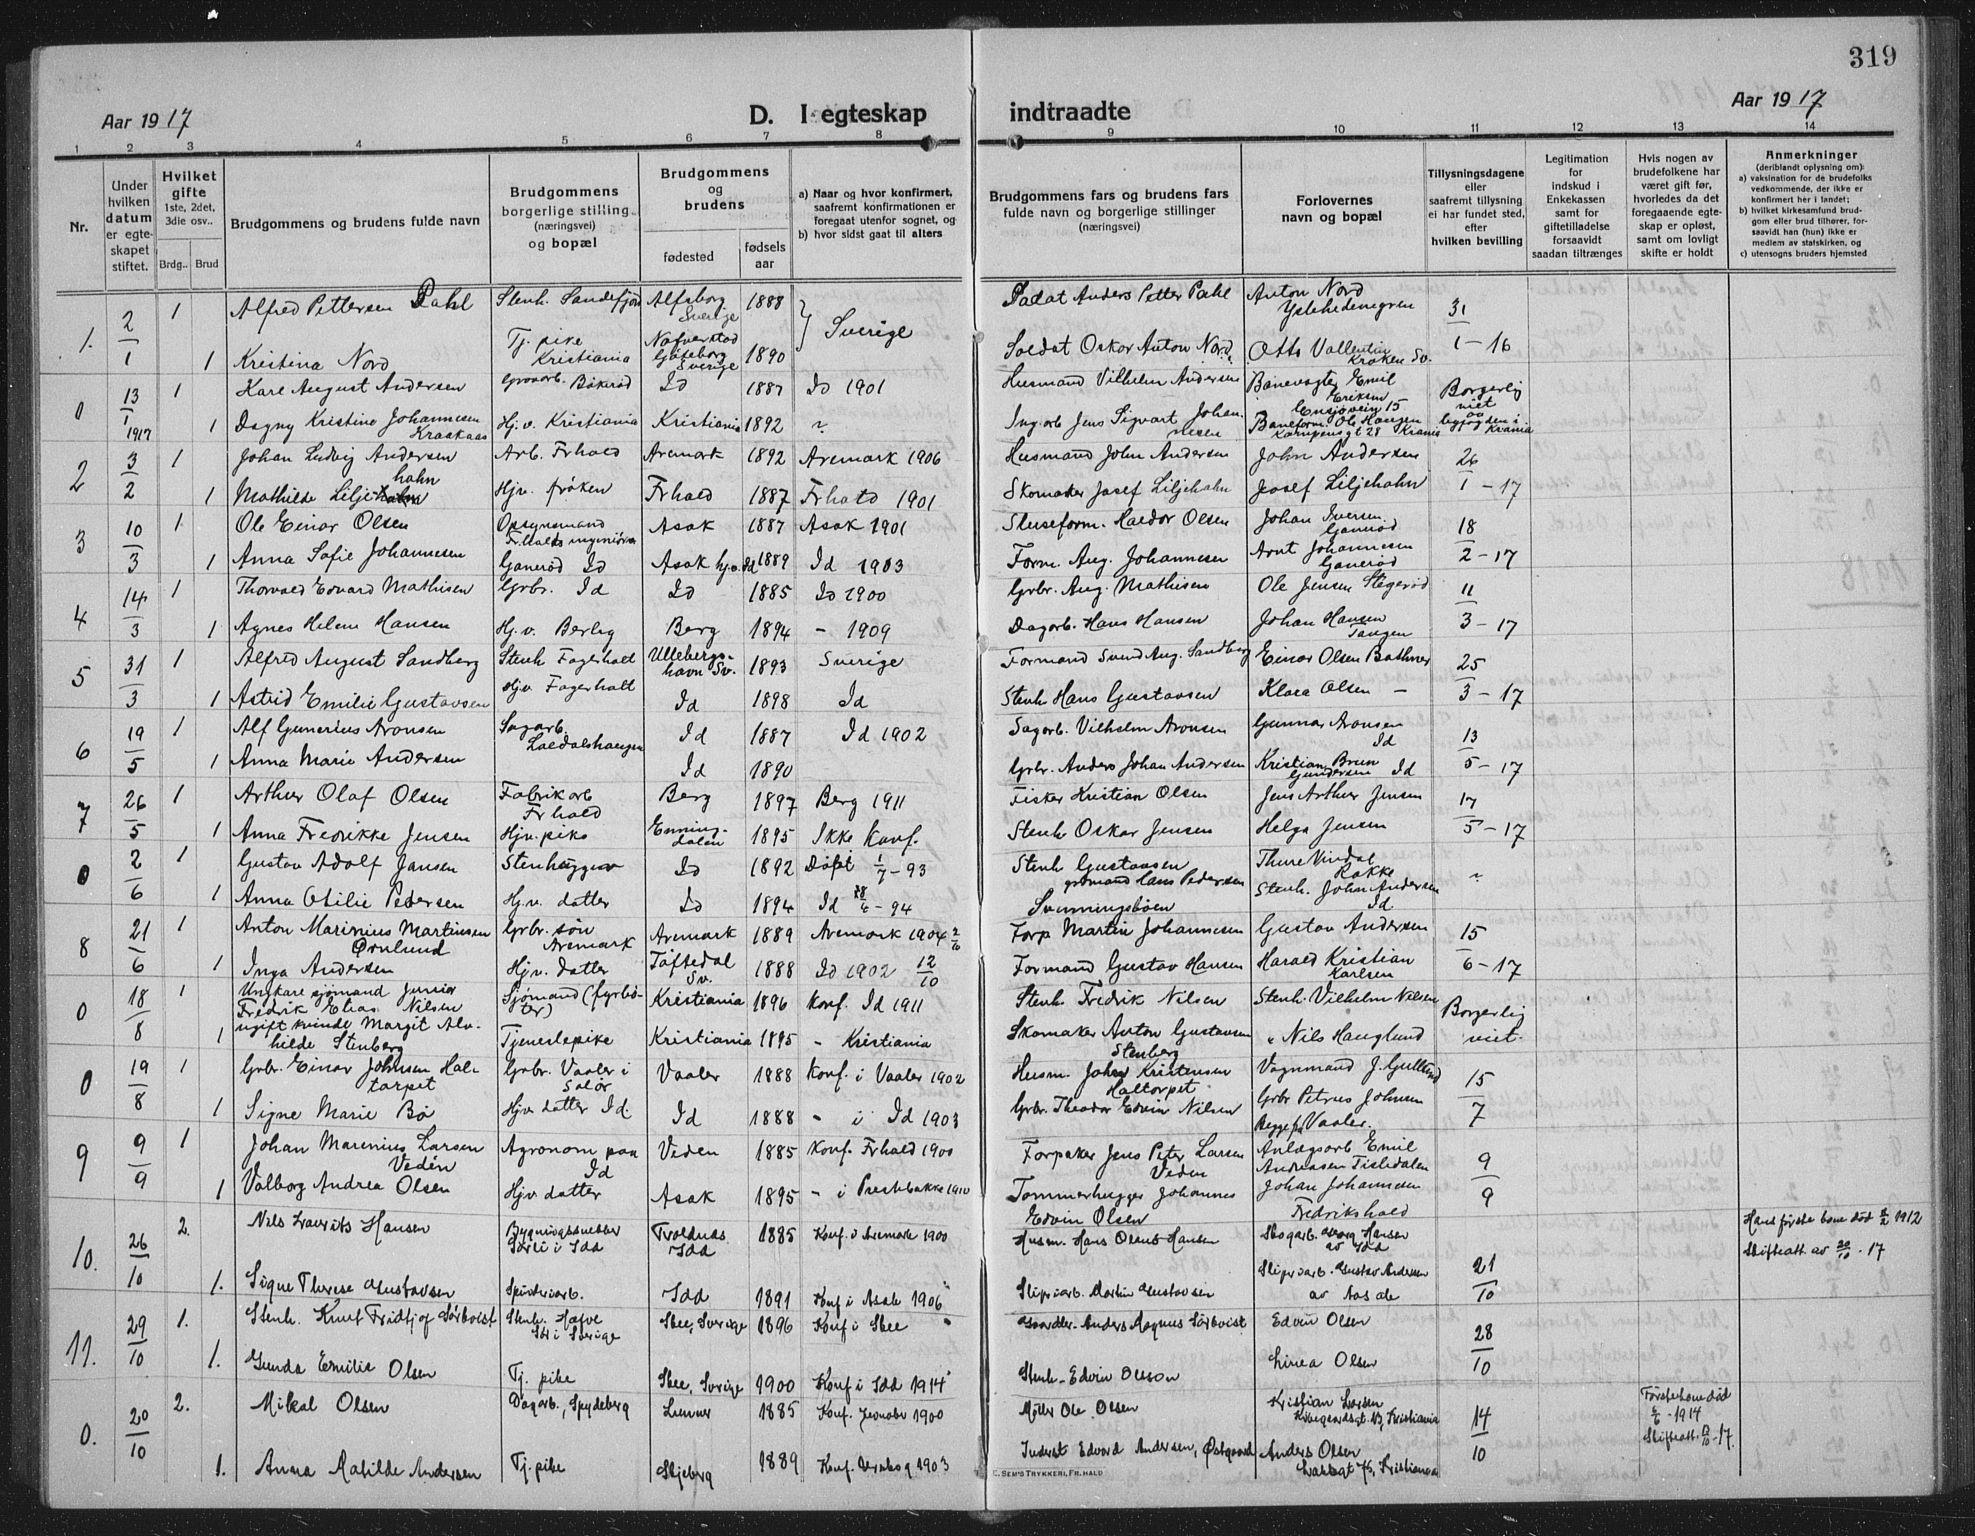 319
Aar 1917
D. I egteskap indtraadte
Aar 1917
1 2 3 4 5 6 7 8 9 10 11 12 13 14
Nr.
Under hvilken datum er egteskapet stiftet.
Hvilket gifte 1ste, 2det, 3die osv..
Brdg.. Brud
Brudgommens og brudens fulde navn
Brudgommens borgerlige stilling (næringsvei) og bopæl
Brudgommens og brudens
fødested
fødsels aar
a) Naar og hvor konfirmert, saafremt konfirmationen er foregaat utenfor sognet, og
b) hvor sidst gaat til alters
Brudgommens fars og brudens fars fulde navn og borgerlige stillinger (næringsvei)
Forlovernes navn og bopæl
Tillysningsdagene eller saafremt tillysning ei har fundet sted, efter hvilken bevilling
Legitimation for indskud i Enkekassen samt for giftetilladelse forsaavidt saadan tiltrænges
Hvis nogen av brudefolkene har været gift før, hvorledes da det foregaaende egteskap er opløst, samt om lovligt skifte er holdt
Anmerkninger (deriblandt oplysning om):
a) vaksination for de brudefolks vedkommende, der ikke er konfirmert her i landet;
b) hvilket kirkesamfund brudgom eller brud tilhører, forsaavidt han (hun) ikke er medlem av statskirken, og
c) utensogns bruders hjemsted
1. 2/1 1 Alfred Pettersen Dahl Stenh. Sandefjord Alfsborg Sverige 1888 Sverige Soldat Anders Petter Dahl Anton Nord 31/1-16
1 Kristina Nord Tj. pike Kristiania Göteborg Sverige 1890 Soldat Oskar Anton Nord Otto Vallentin Kroken Sv.
0 13/1 1917 1 Karl August Andersen Grovarb. Bøkerød Id 1887 Id 1901 Husmand Vilhelm Andersen Banevogter Emil Eriksen Ensjøvein 15 Borgerlig viet
1 Dagny Kristine Johannesen Kraakaas Hj.v. Kristiania Kristiania 1892 Jens Sigvart Johannesen Baneform. Ole Haugen 28 Krania byfogden i Krania
2 3/2 1 Johan Ludvig Andersen Arb. Frhald Aremark 1892 Aremark 1906 Husmand John Andersen John Andersen 26/1-17
1 Mathilde Liljehahn Hjv. frøken Frhald 1887 Frhald 1901 Skomaker Josef Liljehahn Josef Liljehahn
3 10/3 1 Ole Einar Olsen Opsynsmand Asak 1887 Asak 1901 Sluseform. Haldor Olsen Johan Iversen Ganerød 18/2-17
1 Anna Sofie Johannesen Ganerød Id Asak hj.v. Id 1889 Id 1903 Form. Aug. Johannesen Arnt Johannesen Ganerød
4 14/3 1 Thorvald Edvard Mathisen Grbr. Id Id 1885 Id 1900 Grbr. Aug. Mathisen Ole Jensen Stegerød 11/3-17
1 Agnes Helene Hansen Hj.v. Berg Berg 1894 - 1909 Dagarb. Hans Hansen Johan Hansen Tangen
5 31/3 1 Alfred August Sandberg Stenh. Fagerholt Sv. 1893 Sverige Formand Svend Aug. Sandberg Einar Olsen Bathner 25/3-17
1 Astrid Emilie Gustavsen Hjv. Fagerholt Id 1898 Id Stenh. Hans Gustavsen Klara Olsen -
6 19/5 1 Alf Gunerius Aronsen Sagarb. Id 1887 Id 1902 Sagarb. Vilhelm Aronsen Gunnar Aronsen Id 13/5-17
1 Anna Marie Andersen Id 1890 Grbr. Anders Johan Andersen Kristian Brun Gundersen Id
7 26/5 1 Arthur Olaf Olsen Fabrikarb Frhald Berg 1897 Berg 1911 Fisker Kristian Olsen Jens Arthur Jensen 17/5-17
1 Anna Fredrikke Jensen Hjv. pike Enningdalen 1895 Ikke Konf. Stenh Oskar Jensen Helga Jensen
0 2/6 1 Gustav Adolf Jansen Stenhugger Id 1892 Døpt 1/7-93 Stenh Gustavsen Rokke
1 Anna Otilie Pedersen Hj.v. datter Id 1894 Id -94 Hans Pedersen Svenningsbøen Stenh. Johan Andersen Id
8 21/6 1 Anton Marinius Martinsen Ørnlund Grbr. søn Aremark Aremark 1889 Aremark 1904 Forp Martin Johannesen Gustav Andersen 15/6-17
1 Inga Andersen Hjv. datter Töftedal Sv. 1888 Id 1902 12/10 Formand Gustav Hansen Harald Kristian Karlsen
0 18/8 1 Ungkarl sjømand Junior Fredrik Elias Nilsen Sjømand (fyrbøter) Kristiania 1896 Konf. Id 1911 Stenh. Fredrik Nilsen Stenh. Vilhelm Nilsen Borgerlig viet.
1 ugift kvinde Margit Alvhilde Stenberg Tjenestepike Kristiania 1895 - Kristiania Skomaker Anton Gustavsen Stenberg " Nils Hauglund
0 19/8 1 Grbr. Einar Johnsen Haltorpet Grbr. Vaaler i Solør Vaaler 1888 Konf. i Vaaler 1902 Husm. John Kristensen Haltorpet Vognmand J. Gullund 15/7
1 Signe Marie Bø Hjv. datter Id Id 1888 - i Id 1903 Grbr. Theodor Edvin Nilsen Grbr Petrus Johnsen Begge fra Vaaler.
9 9/9 1 Johan Marenius Larsen Veden Agronom paa Id Veden 1885 Konf. Frhald 1900 Forpakter Jens Peter Larsen Veden Anlægsarb Emil Andreasen Tistedalen 9/9
1 Valborg Andrea Olsen Hjv datter Asak 1895 - i Prestebakke 1910 Tømmerhugger Johannes Edvin Olsen Johan Johannesen Fredrikshald
10. 26/10 2. Nils Lauritz Hansen Bygningssnekker i Idd Idd 1885 Konf. i Aremark 1900 Husm. Hans Olaus Hansen Skogarb. Georg Hansen av Idd 21/10 Hans første kone død 1912 Skifteatt. av 20/10-17
1. Signe Therese Gustavsen Spinderiarb. Idd 1891 Konf i Asak 1906 Sliperiarb. Martin Gustavsen Sliperiarb. Gustav Andersen av Aasde
11. 29/10 1. Stenh. Knut Fridtjof Sörkvist Stenh. Skee, Sverige 1896 Konf i Skee Anders Magnus Sörkvist Edvin Olsen 28/10
1. Gunda Emilie Olsen Tj. pike Skee, Sverige 1900 Konf i Idd 1914 Stenh. Edvin Olsson Linea Olsen
0. 20/10 2. Mikal Olsen Dagarb., Spydeberg Lunner 1885 Konf. Jevnaker 1900 Møller Ole Olsen Kristian Larsen Kristiania 14/10 Første kone død 1914 Skifteatt. -17.
1. Anna Matilde Andersen Tj. pike Skjeberg 1889 Konf. 1903 Inderst Edvard Andersen, Østgaard Anders Olsen Kristiania
E. SEM'S TRYKKERI, FR.HALD